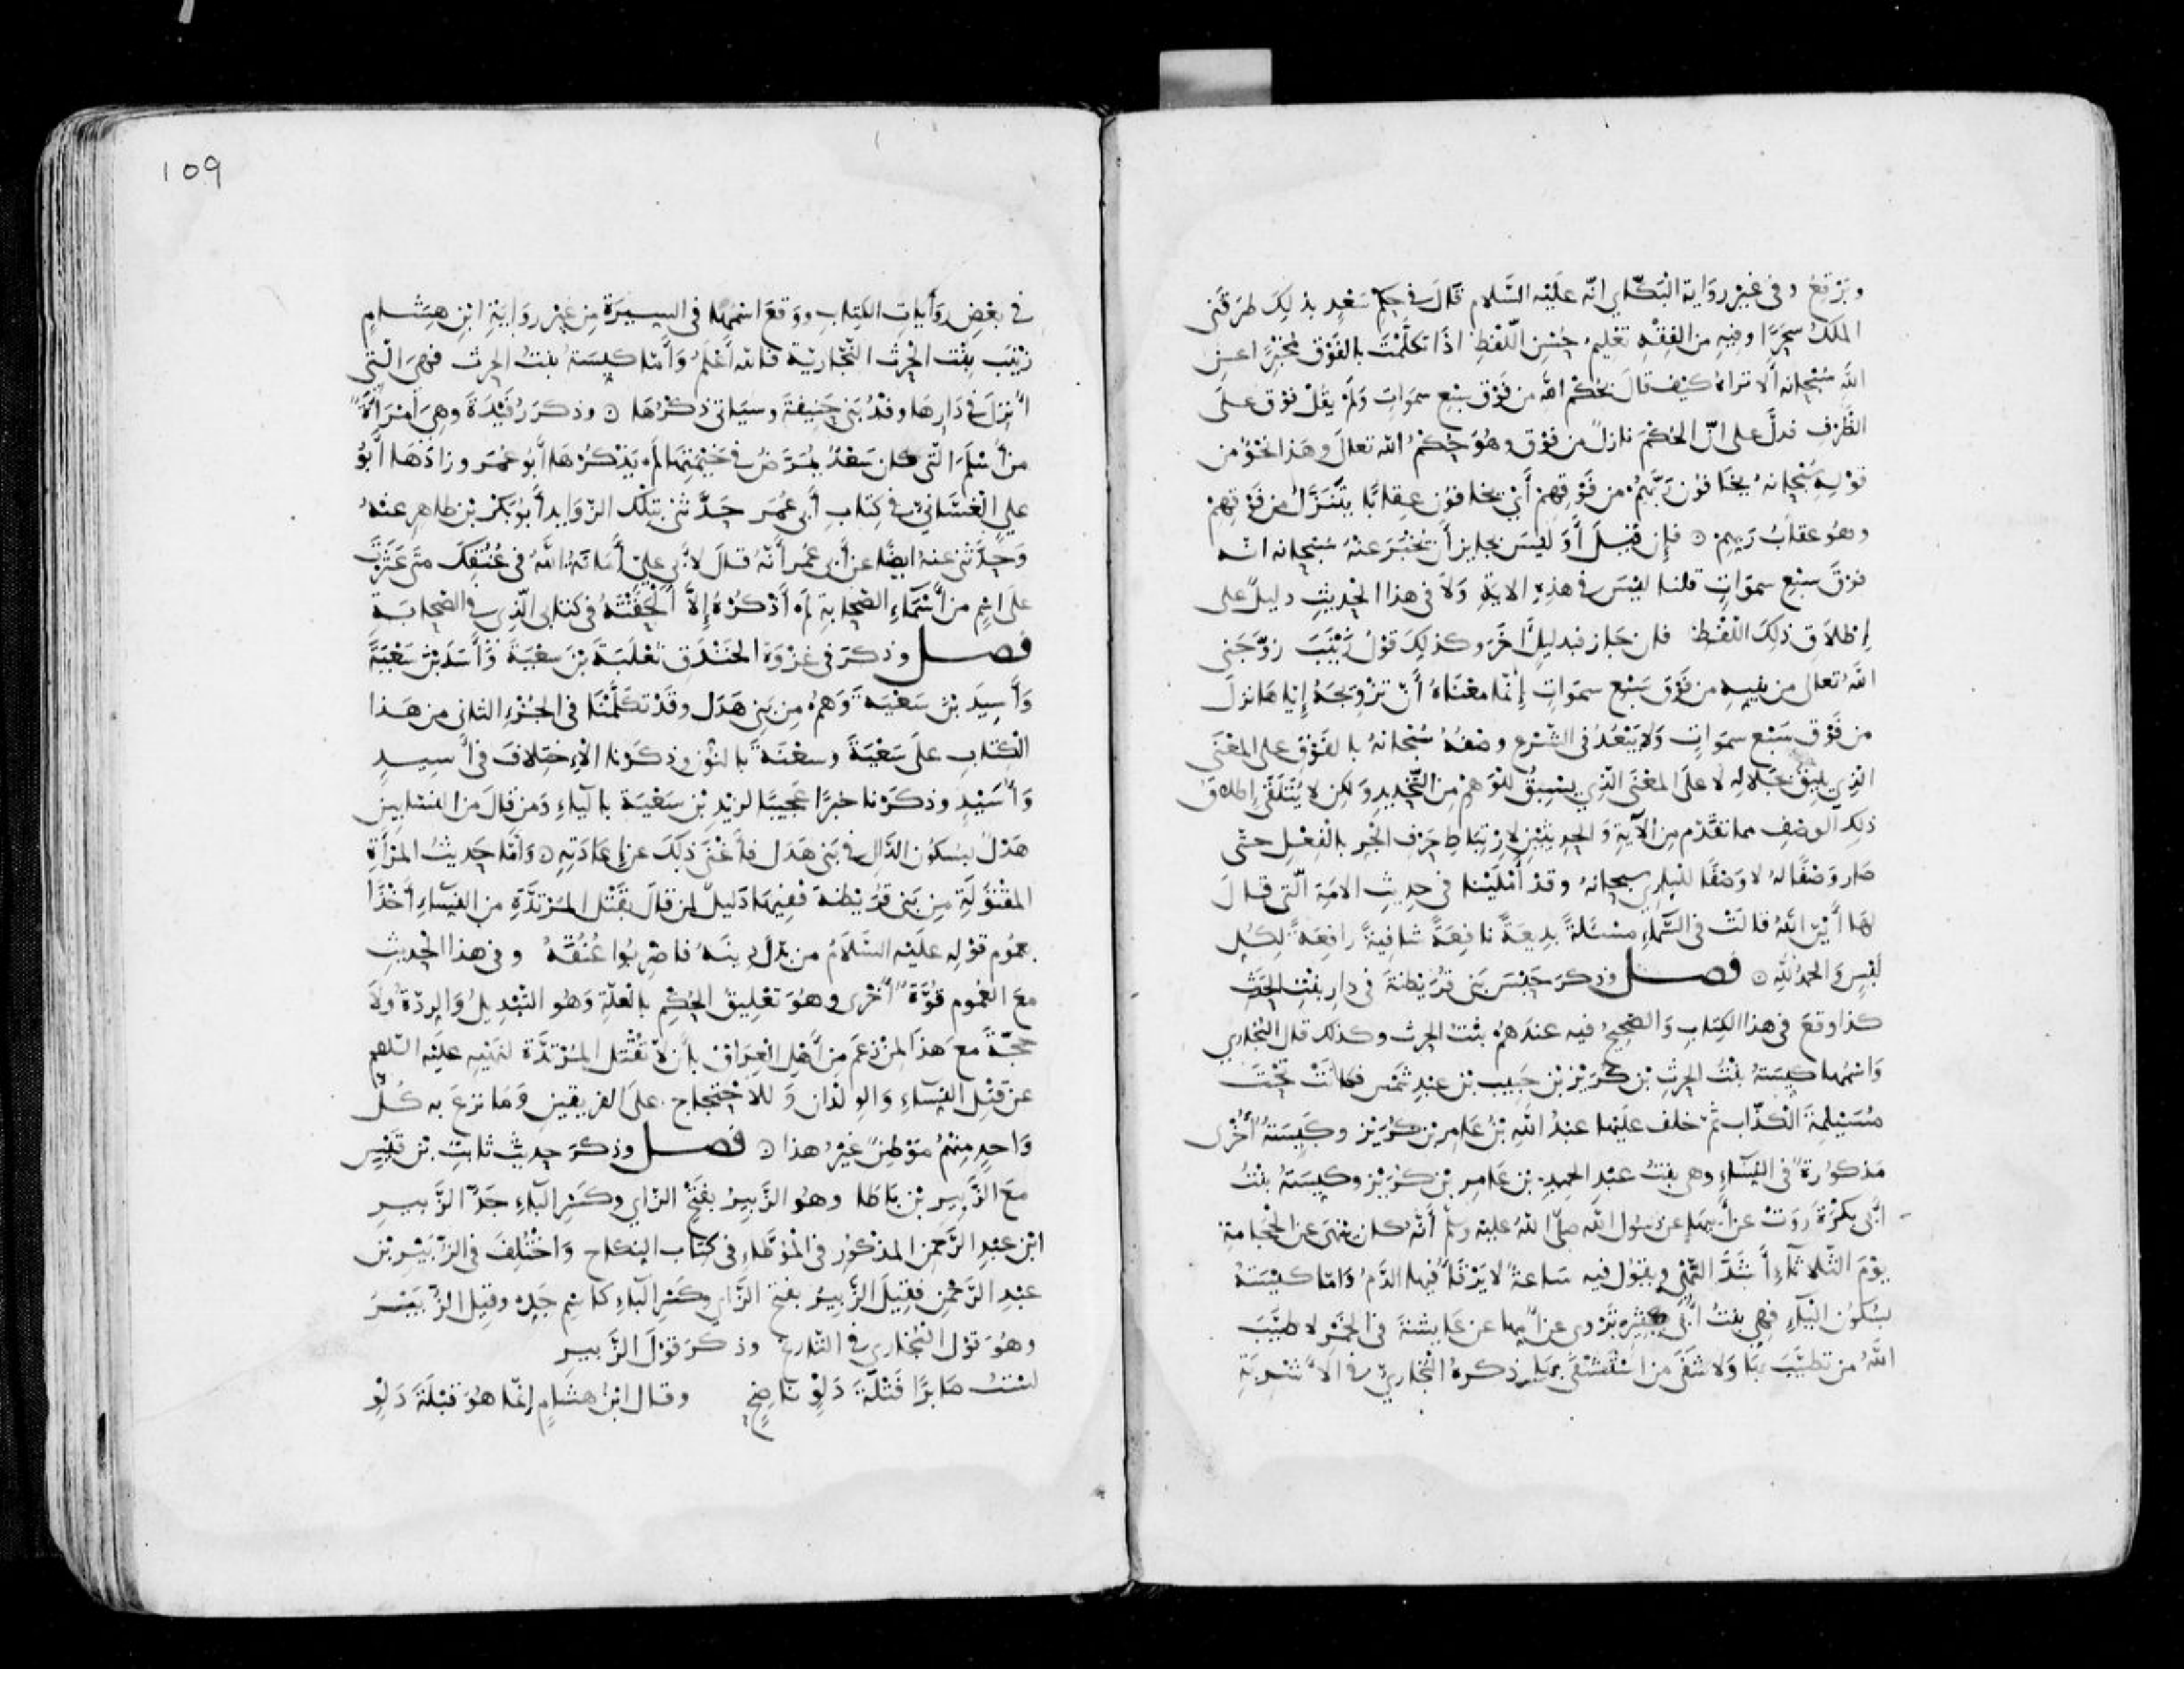 وبَرْقعُ وفى غير رواية البَكّاي انّه عليْه السَّلام قَالَ فى حكم سَعْدٍ بذلِكَ طرَقَنى
الملَكُ سَحَرًا وفيهِ من الفِقْهِ تعْليمُ حُسْنِ اللّفظِ اذَا تكلّمْتَ بالفَوْق مُخبْرًا عن
اللهِ سُبْحانه ألا تراهُ كيْف قالَ بحُكْم الله من فَوْق سَبْعِ سموَاتٍ وَلمْ يقُلْ فوْق على
الظّرْفِ فدلَّ على انّ الحُكْمَ نازلٌ من فوْق وهُوَ حُكْمُ الله تعالَى وهَذا نحْوٌ من
قوْلِهِ سُبْحانهُ يخَافُون رَبّهُمْ من فَوْقهِمْ أَىْ يخافوُن عِقابًا يتَنَزَّلُ من فَوْقِهِمْ
وهُو عقابُ رَبّهِمْ ۞ فإِن قيْلَ أوَ ليْسَ بجايز أَنْ يخْبُرَ عنْهُ سُبْحانه انّه
فوْقَ سبْع سموَاتٍ قلنا ليْسَ فى هذِهِ الايَةِ وَلاَ فى هذا الحْديثِ دليلٌ على
إطْلاَقِ ذلِكَ اللّفْظِ فان جَاز فبدليلٍ آخَرَ وكذلِكَ قوْلُ زيْنَبَ زوّجَنى
اللهُ تعالى من نبيهِ من فَوْق سَبْع سموَاتٍ إنّما معْناهُ أنّ تزْويجهُ إيّاهَا نزلَ
من فَوْق سَبْع سموَاتٍ وَلا يَبْعُدُ فى الشّرْعِ وصْفُهُ سُبْحانهُ بالفَوْقِ على المعْنَى
الذِى يليقُ بجَلالِهِ لا علَى المعْنَى الّذِى يسْبِقُ للوَهمْ من التّحْديدِ وَلكِن لا يُتَلَقّى إطلاقُ
ذلِك الوصْفِ مما تقدّم مِن الآيَةِ وَالحديثيْنِ لارْتِبَاطِ حَرْفِ الجْر بالْفِعْلِ حتّى
صَار وَصْفًا لهُ لا وَصْفًا للبارِى سبحانهُ وقدْ أمْلَيْنا فى حديثِ الامَةِ الّتى قالَ
لهَا أيْن اللهُ قالتْ فى السّماءِ مسْئلةً بديعةً نافِعةً شافيةً رافعَةً لِكُلِّ
لَبْسٍ وَالحمدُ للهِ ۞ فصل وَذكَرَ حبْسَ بَنى قُرَيْظةَ فى دارِ بنْتِ الحَرْث
كذا وقعَ فى هذا الكِتابِ وَالصّحيحُ فيه عندهمْ بنْتُ الحرث وكذلك قال البُخارِى
وَاسْمُها كيسَةُ بنْتُ الحرثِ بن كُرَيْز بْن حَبيب بْن عبدِ شَمْس فكانَتْ تحْتَ
مُسَيْلِمَةَ الكذّاب ثمّ خلف علَيْها عبْدُ اللهِ بْنُ عَامِر بْن كُرَيْز وكَيّسَةُ أُخْرى
مَذكوُرةٌ فى النّسَاءِ وهى بنتُ عبْدِ الحميدِ بْن عَامِر بْن كرُيْز وكيّسَةُ بنْتُ
أَبى بكْرَةَ رَوَتْ عن أبيها عن رَسُول الله صلّى اللهُ عليه وسلم أنّهُ كان ينْهَى عن الحْجَامةِ
يوْمَ الثّلاثاءِ أشَدَّ النّهْى ويقوُل فيه سَاعةٌ لا يَرْقَأُ فيها الدَّمُ وَامّا كيْسَةُ
بسُكوُن اليَاءِ فهى بنتُ أَبى كثير ترْوى عن أمّها عن عَايشةَ فى الخَمْر لا طيّبَ
اللهُ من تطيّبَ بهَا وَلا شَفَى من اسْتَشْفَى بهَا ذكرهُ البُخارىّ فى الأشْربَةِ
109
فى بعْضِ روَاياتِ الكِتابِ ووَقعَ اسْمُها فى السيرَة مِن غيْر روَايةِ ابْنِ هِشامٍ
زيْنَب بنْت الحْرث النّجّاريّة فالله أعْلمُ وَأمّا كيسَةُ بنتُ الحرث فهِىَ الّتى
أُنزلَ فى دَارِهَا وفْدُ بَنى حَنيفةَ وسيَاتى ذكْرُهَا ۞ وذكَرَ رُفَيْدَةَ وهِىَ امْرَأةٌ
من أَسْلَمَ الّتى كان سَعْدٌ يُمَرّضُ فى خيْمَتِهَا لمْ يذْكرْهَا أَبُو عُمَر وزادَهَا أَبُو
على الغَسّانىّ فى كِتابِ أَبى عُمَر حَدّثنى بتِلْك الزّوَايد أَبُو بَكْر بْن طاهِر عنْهُ
وَحدّثنى عنهُ ايضًا عن أَبى عُمَر أنّهُ قالَ لاَبى علىّ أمَانَةُ اللهِ فى عُنُقِكَ متى عَثَرْتَ
علَى اسْمٍ من أَسْمَاءِ الصّحابةِ لمْ أَذْكُرْهُ إلاَّ أَلْحَقْتَهُ فى كتابى الّذِى فى الصّحابَةِ
فصل وَذكَرَ فى غزْوَةِ الخنْدَقِ ثعْلَبَةَ بْنَ سعْيَةَ وَأَسَدَ بْنَ سَعْيَةَ
وَأَسِيدَ بْنَ سَعْيَةَ وَهُمْ مِن بَنى هَدَل وقَدْ تكَلّمْنَا فى الجُزْءِ الثانى من هَذا
الْكتابِ علَى سَعْيَةَ وسعْنَةَ بالنّوُن وذكَرْنا الاِختِلافَ فى أَسِيدٍ
وَأُسَيْدٍ وذكَرْنا خبرًا عَجيبًا لزيْدِ بْن سَعْيَة باليَاءِ وَمن قالَ من النسّابين
هَدْلٌ بسُكوُن الدّالِ فى بَنى هَدَل فأَغْنَى ذلِكَ عن إعَادَتِهِ ۞ وَأمّا حَديثُ المرْأةِ
المقْتوُلَةِ مِن بَنى قُرَيْظةَ ففِيْهَا دَليلٌ لِمن قالَ بقَتْلِ المُرْتدَّةِ من النِّسَاءِ أخْذًا
بعمُوم قوْلِهِ عليْهِ السّلاَمُ من بَدّلَ دينَهُ فاضْرِبُوا عُنُقَهُ وفى هذا الحْديثِ
معَ العُمُوم قُوّةٌ أُخْرى وهُوَ تعْليقُ الحُكْمِ بالْعلّةِ وَهُو التّبْديلُ وَالرِدّةُ وَلا
حجّةَ معَ هَذا لمنْ زعَمَ مِن أَهْلِ الْعِرَاقِ بأَن لاَ تُقْتل المُرْتدَّة لنَهْيِهِ عليْه السّلام
عن قتْلِ النّسَاءِ وَالوِلْدَان وَللاِحْتِجاج علَى الفريقين وَمَا نزعَ به كُلُّ
وَاحِدٍ مِنْهُمْ مَوْطِنٌ غيْرُ هذا ۞ فصل وذكَرَ حديثَ ثابتِ بْن قَيْسٍ
معَ الزَّبِيرِ بْن بَاطَا وهُو الزَّبيرُ بفتْحِ الزّاى وكَسْرِ البَاءِ جَدُّ الزَّبيرِ
ابْن عبْدِ الرّحْمن المذكوُر فى المْوُطّاءِ فى كتاب النكاح وَاخْتُلِفَ فى الزّبَيْرِ بْن
عبْدِ الرّحْمنِ فقِيلَ الزَّبيرُ بفتْح الزّاى وكَسْرِ البَاءِ كاسْمِ جَدِّهِ وقيل الزُّبَيْرَ
وهُوَ قوْلُ البُخارى فى التّاريخ وذكَرَ قوْلَ الزَّبير
لسْتُ صَابرًا فَتْلَةَ دَلْوٍ نَاضِحٍ وقال ابْنُ هشَامٍ إنّمَا هُوَ قبْلَةَ دَلْوٍ